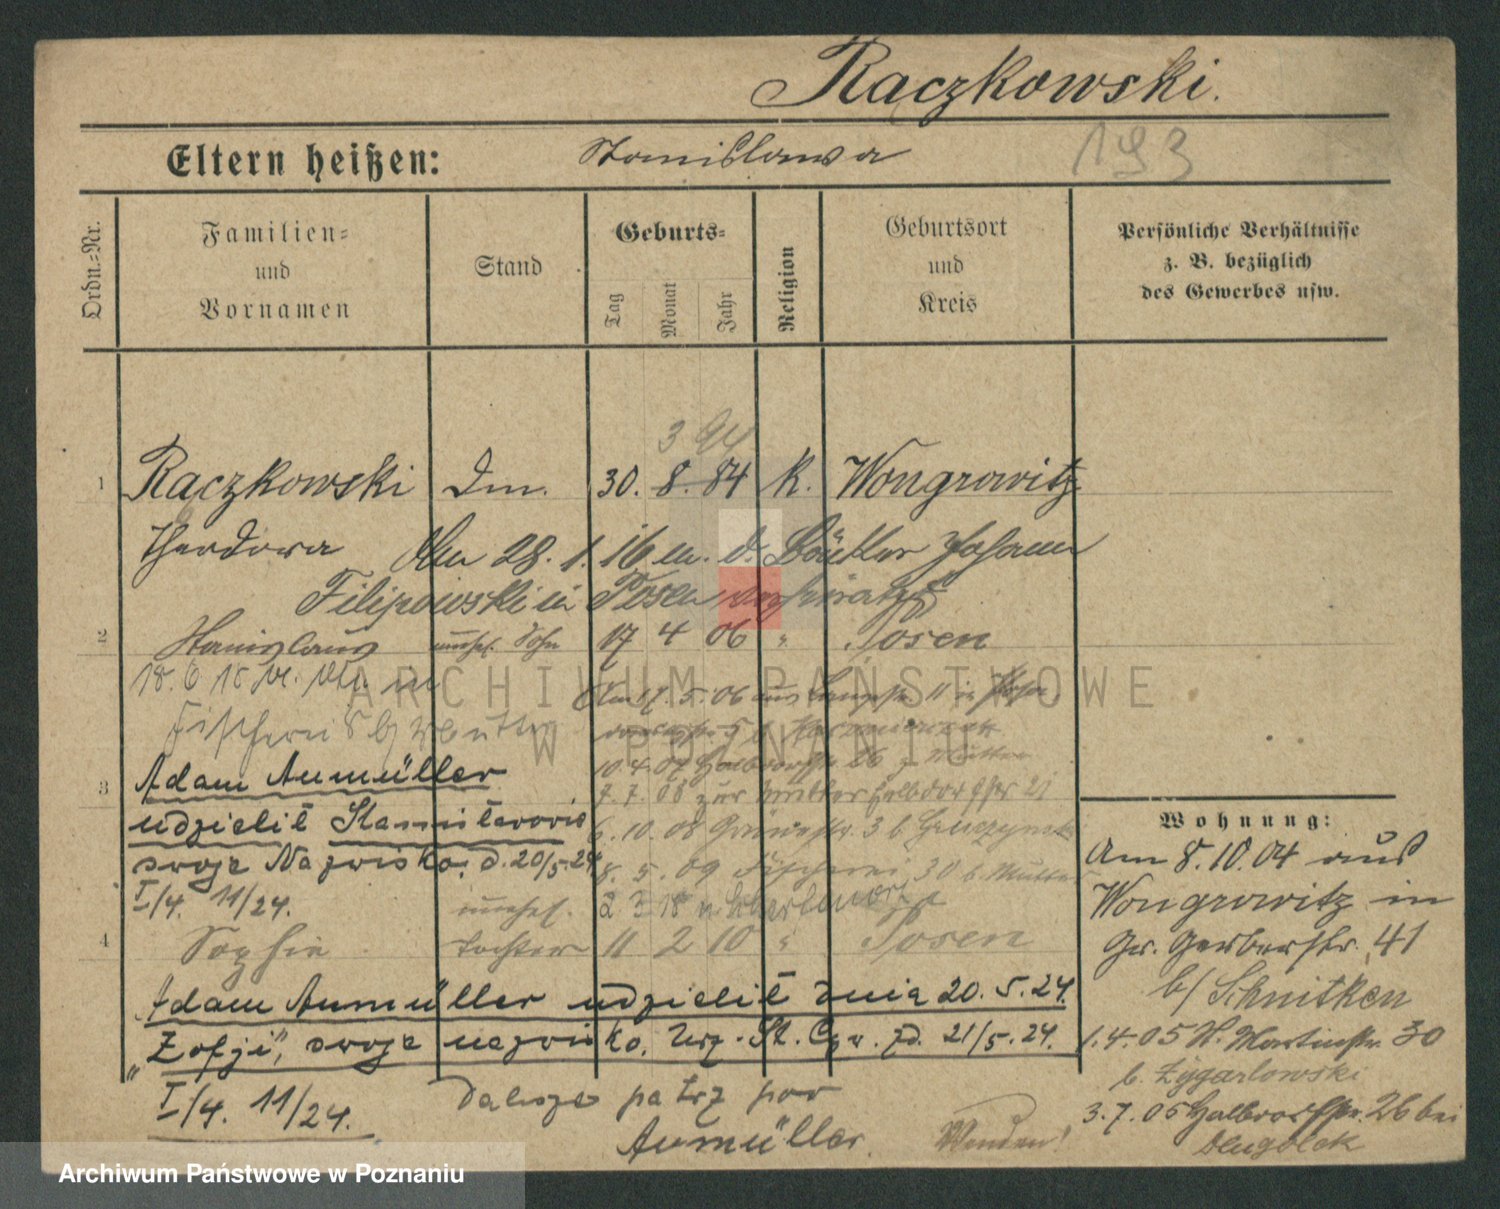 Raczkowski.
Eltern heißen: Stanislawa 193
Ordn.=Nr.
Familien=
und
Vornamen
Stand
Geburts=
Tag
Monat
Jahr
Religion
Geburtsort
und
Kreis
Persönliche Verhältnisse
z. B. bezüglich
des Gewerbes usw.
3 94
1 Raczkowski 30. 8. 84 K. Wongrowitz
Theodora Am 28. 1. 16 m. d. Johann
Filipowski in Posen
2 Stanislaus unehel. Sohn 17 4 06 " Posen
18. 6. 18
Am 17. 5. 06 aus 11 in
Fischerei 8 b/ Mutter
10. 4. 07 Halbdorfstr. 26 z. Mutter
Adam Aumüller
3
7. 7. 08 zur Mutter Halbdorfstr 21
udzielił Stanisławowi
6. 10. 08 3 b.
swoje Nazwisko, d. 20/5. 24
8. 5. 09 Fischerei 30 b. Mutter
I/4. 11/24.
unehel. 2 3 18 n
4 Sophie Tochter 11 2 10 " Posen
Adam Aumüller udzielił dnia 20. 5. 24.
"Zofji", swoje nazwisko. Urz. St. Cyw. zd. 21/5. 24.
I/4. 11/24.
Dalsze patrz por
Aumüller.
Wenden!
Wohnung:
Am 8. 10. 04 aus
Wongrowitz in
Gr. Gerberstr. 41
b/ Schnitken
1. 4. 05 St. Martinstr. 30
b. Zygarlowski
3. 7. 05 Halbdorfstr. 26 bei
Dlugolek
ARCHIWUM PAŃSTWOWE
W POZNANIU
Archiwum Państwowe w Poznaniu